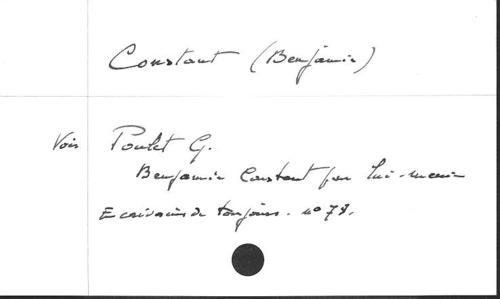 Constant (Benjamin)
Voir Poulet G.
Benjamin Constant par lui-même
Ecrivains de toujours. n° 78.